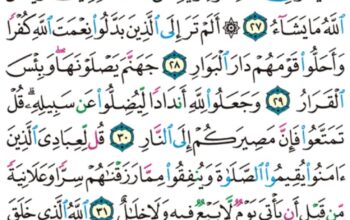 ٱللَّهُ مَا يَشَآءُ ٢٧ ۞ أَلَمْ تَرَ إِلَى ٱلَّذِينَ بَدَّلُوا۟ نِعْمَتَ ٱللَّهِ كُفْرًا
وَأَحَلُّوا۟ قَوْمَهُمْ دَارَ ٱلْبَوَارِ ٢٨ جَهَنَّمَ يَصْلَوْنَهَا ۖ وَبِئْسَ
ٱلْقَرَارُ ٢٩ وَجَعَلُوا۟ لِلَّهِ أَندَادًا لِّيُضِلُّوا۟ عَن سَبِيلِهِۦ ۗ قُلْ
تَمَتَّعُوا۟ فَإِنَّ مَصِيرَكُمْ إِلَى ٱلنَّارِ ٣٠ قُل لِّعِبَادِىَ ٱلَّذِينَ
ءَامَنُوا۟ يُقِيمُوا۟ ٱلصَّلَوٰةَ وَيُنفِقُوا۟ مِمَّا رَزَقْنَٰهُمْ سِرًّا وَعَلَانِيَةً
مِّن قَبْلِ أَن يَأْتِىَ يَوْمٌ لَّا بَيْعٌ فِيهِ وَلَا خِلَٰلٌ ٣١ ٱللَّهُ ٱلَّذِى خَلَقَ